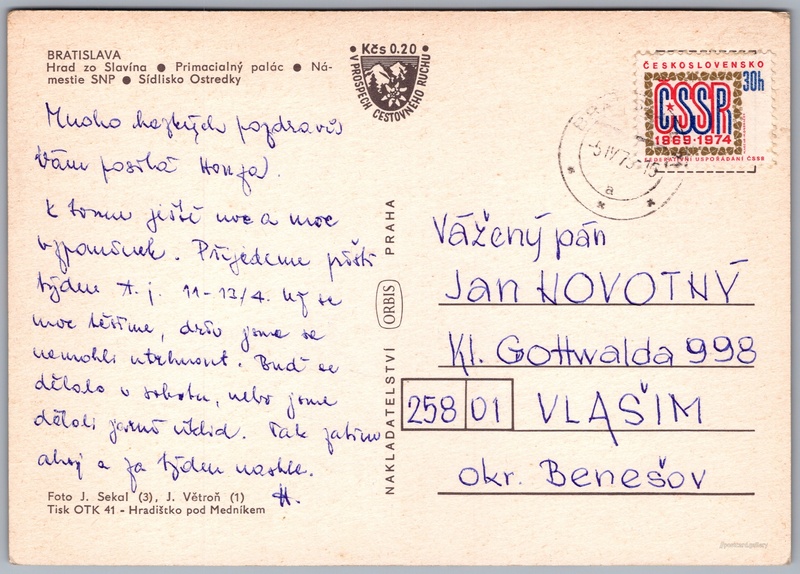 BRATISLAVA
Hrad zo Slavína ● Primacialný palác ● Ná-
mestie SNP ● Sídlisko Ostredky
• Kčs 0.20 •
V PROSPECH CESTOVNÉHO RUCHU
ČESKOSLOVENSKO
30h
ČSSR
1969-1974
FEDERATIVNÍ USPOŘÁDÁNÍ ČSSR
-5.IV.75-15
a
Mnoho hezkých pozdravů
Vám posílá Honza.
K tomu ještě moc a moc
vzpomínek. Přijedeme příští
týden t.j. 11-13/4. Už se
moc těšíme, dřív jsme se
nemohli utrhnout. Buď se
dělalo v sobotu, nebo jsme
dělali jarní úklid. Tak zatím
ahoj a za týden nashle.
H.
Foto J. Sekal (3), J. Větroň (1)
Tisk OTK 41 - Hradištko pod Medníkem
NAKLADATELSTVÍ ORBIS PRAHA
Vážený pán
Jan NOVOTNÝ
Kl. Gottwalda 998
258 01 VLAŠIM
okr. Benešov